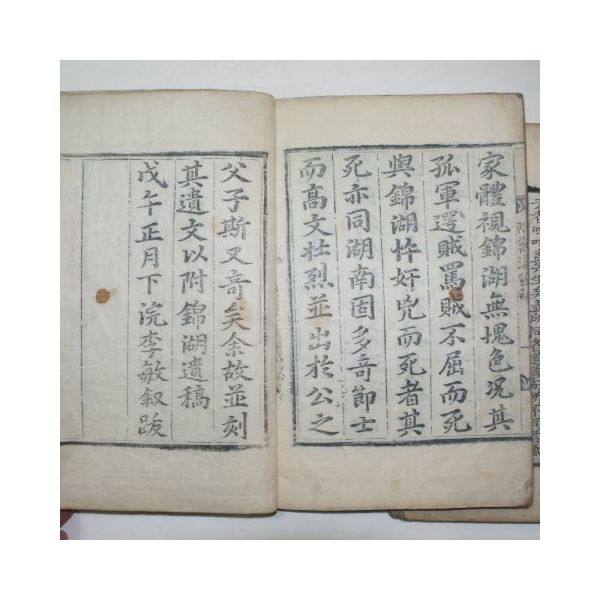 家體視錦湖無愧色況其
孤軍逆賊罵賊不屈而死
與錦湖忤奸兇而死者其
死亦同湖南固多奇節士
而高文壯烈並出於公之
父子斯又奇矣余故並刻
其遺文以附錦湖遺稿
戊午正月下浣李敏叙跋